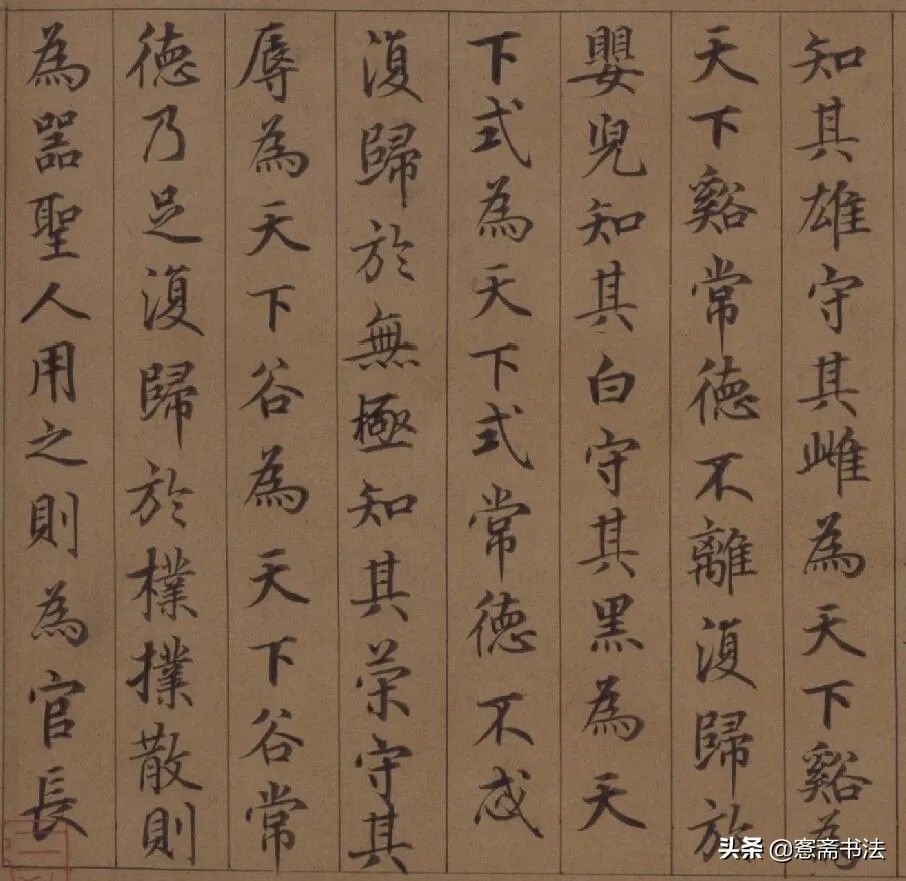 知其雄守其雌為天下谿為
天下谿常德不離復歸於
嬰兒知其白守其黑為天
下式為天下式常德不忒
復歸於無極知其榮守其
辱為天下谷為天下谷常
德乃足復歸於樸撲散則
為器聖人用之則為官長
头条 @愙斋书法